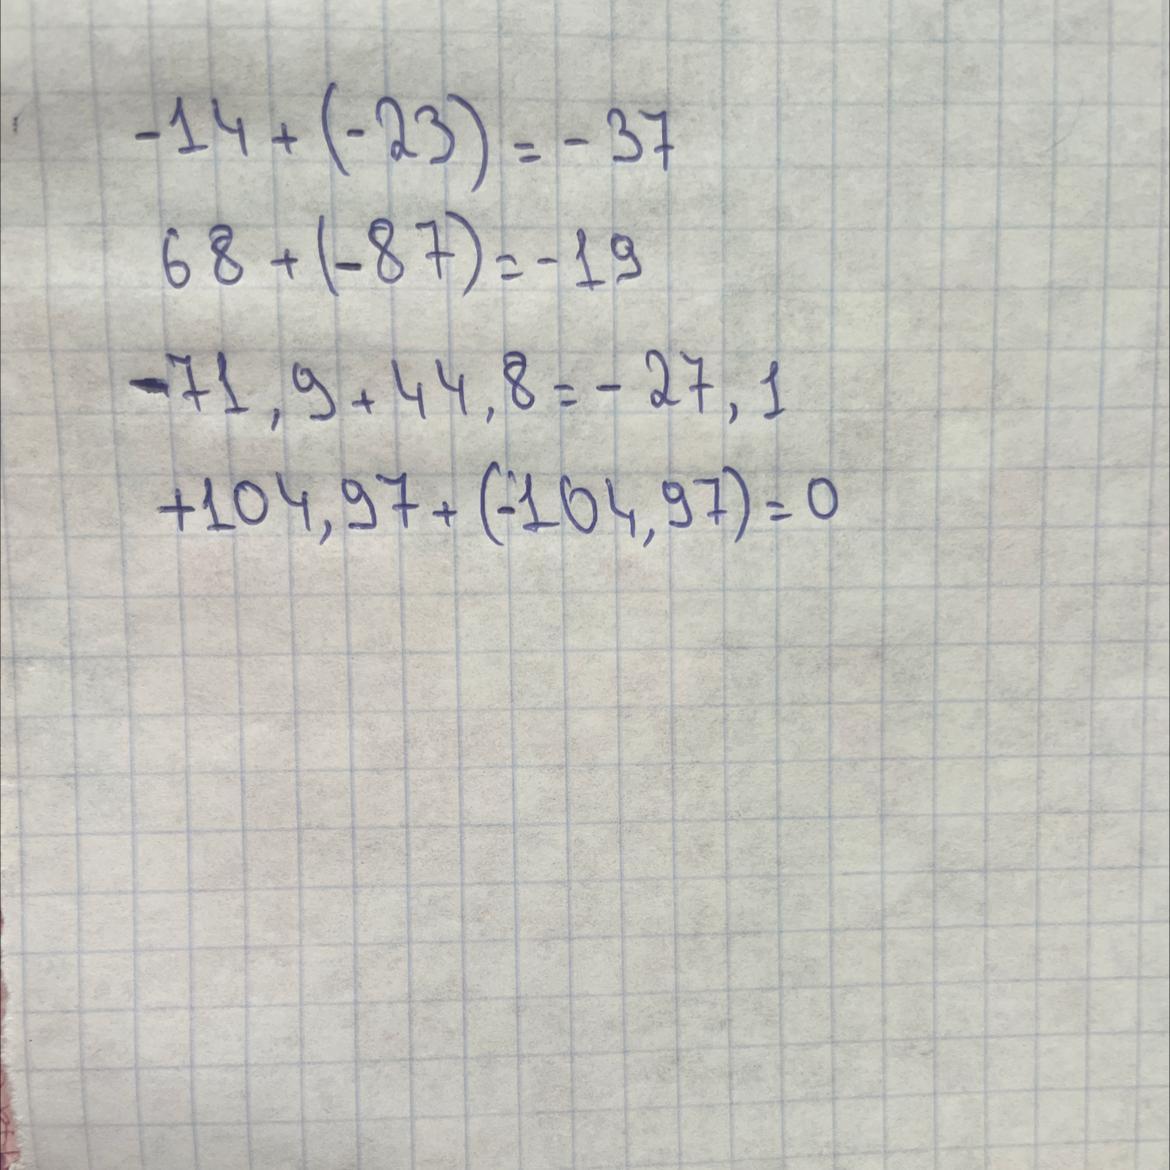 -14 + (-23) = - 37
68 + (-87) = -19
-71,9 + 44,8 = - 27,1
+104,97 + (-104,97) = 0